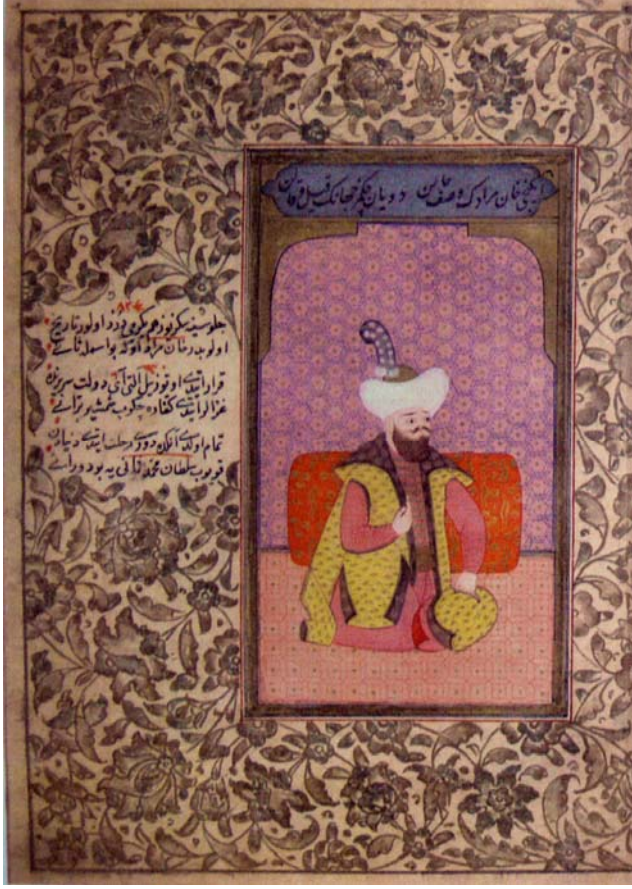 ایکنجی خان مرادك وصف حالین دویان چکمز جهانك قیل و قالین
۸۲۴
جلوسینه سکز یوز هم یکرمی درد اولور تاریخ
اولوبدر خان مراد اوکه بو اسمله ثانی
قرار ایتدی اوتوز ییل التی آی دولت سریرنده
غزالر ایتدی کفاره چکوب شمشیر برانی
تمام اولدی آنکده دوری رحلت ایتدی دنیادن
قویوب سلطان محمد ثانی یه بو دورانی